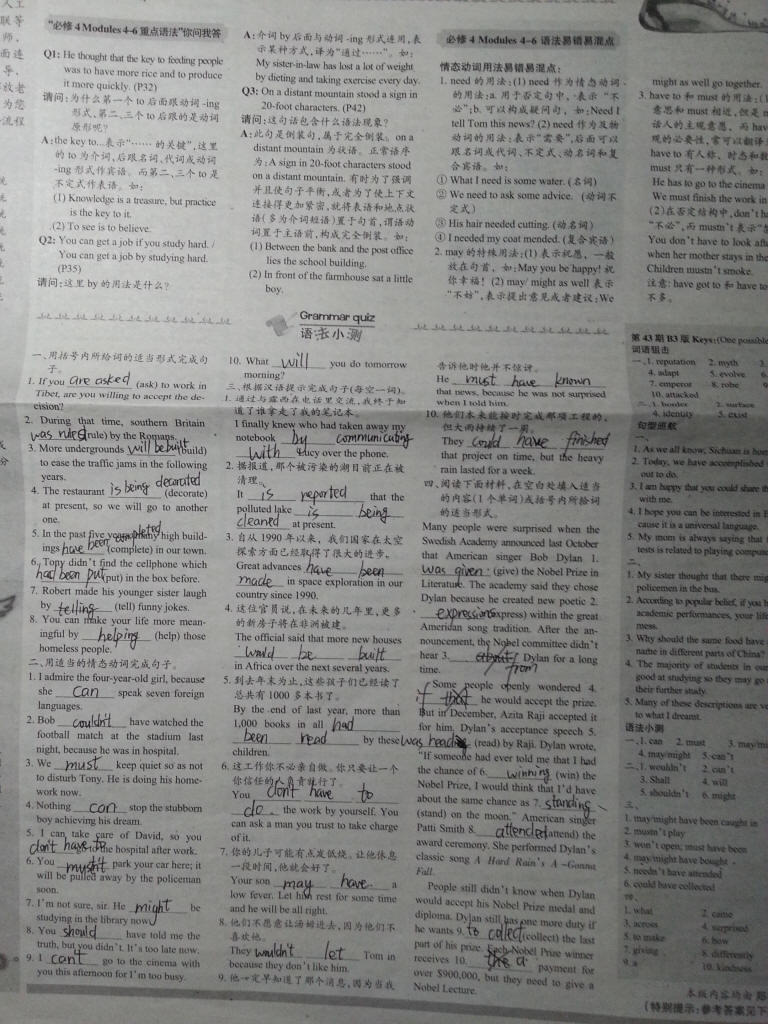 "必修 4 Modules 4-6 重点语法"你问我答
Q1: He thought that the key to feeding people
was to have more rice and to produce
it more quickly. (P32)
请问:为什么第一个 to 后面跟动词 -ing
形式,第二、三个 to 后跟的是动词
原形呢?
A: the key to...表示"……的关键",这里
的 to 为介词,后跟名词、代词或动词
-ing 形式作宾语。而第二、三个 to 是
不定式作表语。如:
(1) Knowledge is a treasure, but practice
is the key to it.
(2) To see is to believe.
Q2: You can get a job if you study hard. /
You can get a job by studying hard.
(P35)
请问:这里 by 的用法是什么?
A: 介词 by 后面与动词 -ing 形式连用,表
示某种方式,译为"通过……"。如:
My sister-in-law has lost a lot of weight
by dieting and taking exercise every day.
Q3: On a distant mountain stood a sign in
20-foot characters. (P42)
请问:这句话包含什么语法现象?
A: 此句是倒装句,属于完全倒装。on a
distant mountain 为状语。正常语序
为:A sign in 20-foot characters stood
on a distant mountain. 有时为了强调
并且使句子平衡,或者为了使上下文
连接得更加紧密,就将表语和地点状
语(多为介词短语)置于句首,谓语动
词置于主语前,构成完全倒装。如:
(1) Between the bank and the post office
lies the school building.
(2) In front of the farmhouse sat a little
boy.
必修 4 Modules 4-6 语法易错易混点
情态动词用法易错易混点:
1. need 的用法:(1) need 作为情态动词
的用法:a. 用于否定句中,表示"不
必";b. 可以构成疑问句,如:Need I
tell Tom this news? (2) need 作为及物
动词的用法:表示"需要",后面可以
跟名词或代词、不定式、动名词和复
合宾语。如:
① What I need is some water. (名词)
② We need to ask some advice. (动词不
定式)
③ His hair needed cutting. (动名词)
④ I needed my coat mended. (复合宾语)
2. may 的特殊用法:(1) 表示祝愿,一般
放在句首,如:May you be happy! 祝
你幸福! (2) may/ might as well 表示
"不妨",表示提出意见或者建议:We
might as well go together.
3. have to 和 must 的用法:
意思和 must 相近,但是
话人的主观意愿,而 hav
观的必要性,常可以翻译
have to 有人称、时态和数
must 只有一种形式。如:
He has to go to the cinema
We must finish the work in
(2) 在否定结构中,don't ha
"不必",而 mustn't 表示
You don't have to look aft
when her mother stays in the
Children mustn't smoke.
注意: have got to 和 have to
不多。
Grammar quiz
语法小测
一、用括号内所给词的适当形式完成句
子。
1. If you are asked (ask) to work in
Tibet, are you willing to accept the de-
cision?
2. During that time, southern Britain
was ruled (rule) by the Romans.
3. More undergrounds will be built (build)
to ease the traffic jams in the following
years.
4. The restaurant is being decorated (decorate)
at present, so we will go to another
one.
5. In the past five years, many high build-
ings have been completed (complete) in our town.
6. Tony didn't find the cellphone which
had been put (put) in the box before.
7. Robert made his younger sister laugh
by telling (tell) funny jokes.
8. You can make your life more mean-
ingful by helping (help) those
homeless people.
二、用适当的情态动词完成句子。
1. I admire the four-year-old girl, because
she can speak seven foreign
languages.
2. Bob couldn't have watched the
football match at the stadium last
night, because he was in hospital.
3. We must keep quiet so as not
to disturb Tony. He is doing his home-
work now.
4. Nothing can stop the stubborn
boy achieving his dream.
5. I can take care of David, so you
don't have to go to the hospital after work.
6. You mustn't park your car here; it
will be pulled away by the policeman
soon.
7. I'm not sure, sir. He might be
studying in the library now.
8. You should have told me the
truth, but you didn't. It's too late now.
9. I can't go to the cinema with
you this afternoon for I'm too busy.
10. What will you do tomorrow
morning?
三、根据汉语提示完成句子(每空一词)。
1. 通过与露西在电话里交流,我终于知
道了谁拿走了我的笔记本。
I finally knew who had taken away my
notebook by communicating
with Lucy over the phone.
2. 据报道,那个被污染的湖目前正在被
清理。
It is reported that the
polluted lake is being
cleaned at present.
3. 自从 1990 年以来,我们国家在太空
探索方面已经取得了很大的进步。
Great advances have been
made in space exploration in our
country since 1990.
4. 这位官员说,在未来的几年里,更多
的新房子将在非洲被建。
The official said that more new houses
would be built
in Africa over the next several years.
5. 到去年末为止,这些孩子们已经读了
总共有 1000 多本书了。
By the end of last year, more than
1,000 books in all had
been read by these
children.
6. 这工作你不必亲自做。你只要让一个
你信任的人负责就行了。
You don't have to
do the work by yourself. You
can ask a man you trust to take charge
of it.
7. 你的儿子可能有点发低烧。让他休息
一段时间,他就会好了。
Your son may have a
low fever. Let him rest for some time
and he will be all right.
8. 他们不愿意让汤姆进去,因为他们不
喜欢他。
They wouldn't let Tom in
because they don't like him.
9. 他一定早知道了那个消息,因为当我
告诉他时他并不惊讶。
He must have known
that news, because he was not surprised
when I told him.
10. 他们本来能按时完成那项工程的,
但大雨持续了一周。
They could have finished
that project on time, but the heavy
rain lasted for a week.
四、阅读下面材料,在空白处填入适当
的内容(1 个单词)或括号内所给词
的适当形式。
Many people were surprised when the
Swedish Academy announced last October
that American singer Bob Dylan 1.
was given (give) the Nobel Prize in
Literature. The academy said they chose
Dylan because he created new poetic 2.
expressions (express) within the great
American song tradition. After the an-
nouncement, the Nobel committee didn't
hear 3. from Dylan for a long
time.
Some people openly wondered 4.
if he would accept the prize.
But in December, Azita Raji accepted it
for him. Dylan's acceptance speech 5.
was read (read) by Raji. Dylan wrote,
"If someone had ever told me that I had
the chance of 6. winning (win) the
Nobel Prize, I would think that I'd have
about the same chance as 7. standing
(stand) on the moon." American singer
Patti Smith 8. attended (attend) the
award ceremony. She performed Dylan's
classic song A Hard Rain's A-Gonna
Fall.
People still didn't know when Dylan
would accept his Nobel Prize medal and
diploma. Dylan still has one more duty if
he wants 9. to collect (collect) the last
part of his prize. Each Nobel Prize winner
receives 10. a payment for
over $900,000, but they need to give a
Nobel Lecture.
第 43 期 B3 版 Keys: (One possible
词语狙击
一、1. reputation 2. myth 3.
4. adapt 5. evolve 6.
7. emperor 8. robe 9
10. attacked
二、1. border 2. surface
4. identity 5. exist
句型巡航
一、
1. As we all know, Sichuan is hom
2. Today, we have accomplished
out to do.
3. I am happy that you could share th
with me.
4. I hope you can be interested in E
cause it is a universal language.
5. My mom is always saying that
tests is related to playing compu
二、
1. My sister thought that there mig
policemen in the bus.
2. According to popular belief, if you h
academic performances, your life
mess.
3. Why should the same food have
name in different parts of China?
4. The majority of students in our
good at studying so they may go
their further study.
5. Many of these descriptions are ve
to what I dreamt.
语法小测
一、1. can 2. must 3. may/mi
4. may/might 5. can't
二、1. wouldn't 2. can't
3. Shall 4. will
5. shouldn't 6. might
三、
1. may/might have been caught in
2. mustn't play
3. won't open; must have been
4. may/might have bought
5. needn't have attended
6. could have collected
四、
1. what 2. came
3. across 4. surprised
5. to make 6. how
7. giving 8. differently
9. a 10. kindness
本版内容均由 郑
(特别提示:参考答案见下